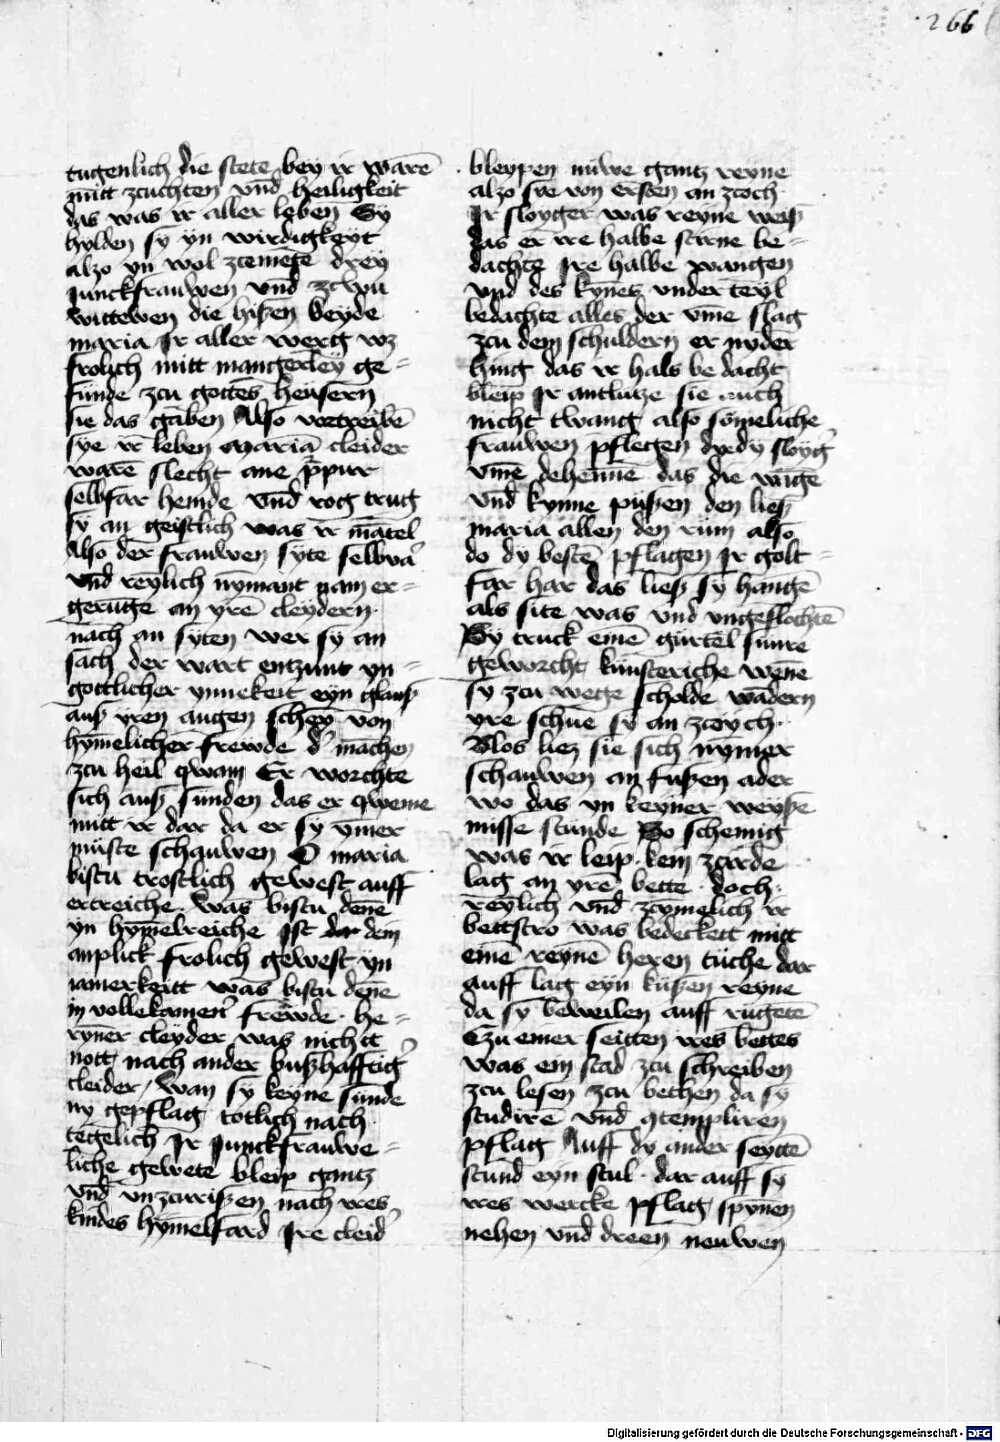 266
tugenlich die stete bey ir warē
mitt zcuchten vnd heiligkeit
das was ir aller leben Sy
hylden sy yn wirdigkeyt
alzo yn wol zcemete drey
Junckfrauwen vnd zcwu
wittewen die hißen beyde
maria Ir aller werg wz
frolich mitt mangerley ge=
sunde zcu gottes heusern
sie das gaben Also vortreibē
sye ir leben Maria cleider
warē slecht ane ppur
selbfar hemde vnd rog trug
sy an geistlich was ir mātel
Also der frauwen syte selbvar
vnd reylich nymant nam er=
gerunge an yrē cleydern·
nach an syten wer sy an
sach der wart entzunt yn=
gottlicher ynnekeit eyn glantz
auß yren augen schey von
hymelicher frewde d' machen
zcu heil qwam Er worchte
sich auß sunden das er qweme
mitt ir dar da er sy vmer
muste schauwen O maria
bistu trostlich gewest auff
ertreiche was bistu dēne
yn hymelreiche Ist dar dein
anplick frolich gewest yn
iamerkeitt was bistu dēne
in vollekamen' frewde· he=
ryner cleyder was nichtt
nott nach ander bußhafftig'
cleider, wan sy keyne sunde
ny gepflag totlich nach
tegelich Ir Junckfrauwe=
liche gewete bleip gantz
vnd vnzcurißen nach ires
kindes hymelfard Ire cleid'
bleypen nuwe gantz reyne
alzo sye von ersten an zcoch·
Ir sloyger was reyne weiß
das er ire halbe stirne be=
dachte Ire halbe wangen
vnd des kynes vnder teyl
bedachte alles der vme slag
zcu dem schuldern er nyder
hing das ir hals be dacht
bleip Ir antlutze sie auch
nicht twang also sōmeliche
frauwen pflegen dy dy sloyg'
vme dehenne das die wāge
vnd kynne pußen den ließ
maria allen den rum also
do dy bestē pflagen Ir golt=
far har das ließ sy hangē
als site was vnd vngeflochtē
Sy truck einē gurtel sunre
geworcht kunsteriche wene
sy zcu wege scholde wādern
yre schue sy an zcoych·
Blos liez sie sich nymer
schauwen an fußen ader
wo das yn keyner weyße
misse stunde So schemig
was ir leip· kein zcirde
lag an yrē bette· doch·
reylich vnd zcymelich ir
bettstro was bedeckett mitt
einē reynē heren tuche dar
auff lag eyn kußen reyne
da sy beweilen auff rugetē
Czu einer seitten yres bettes
was ein stad zcu schreiben
zcu lesen zcu bethen da sy
studirē vnd 9templiren
pflag Auff dy ander seyttē
stund eyn stul· dar auff sy
yres wercke pflag, spynen
nehen vnd dreen neuwen
Digitalisierung gefördert durch die Deutsche Forschungsgemeinschaft - DFG